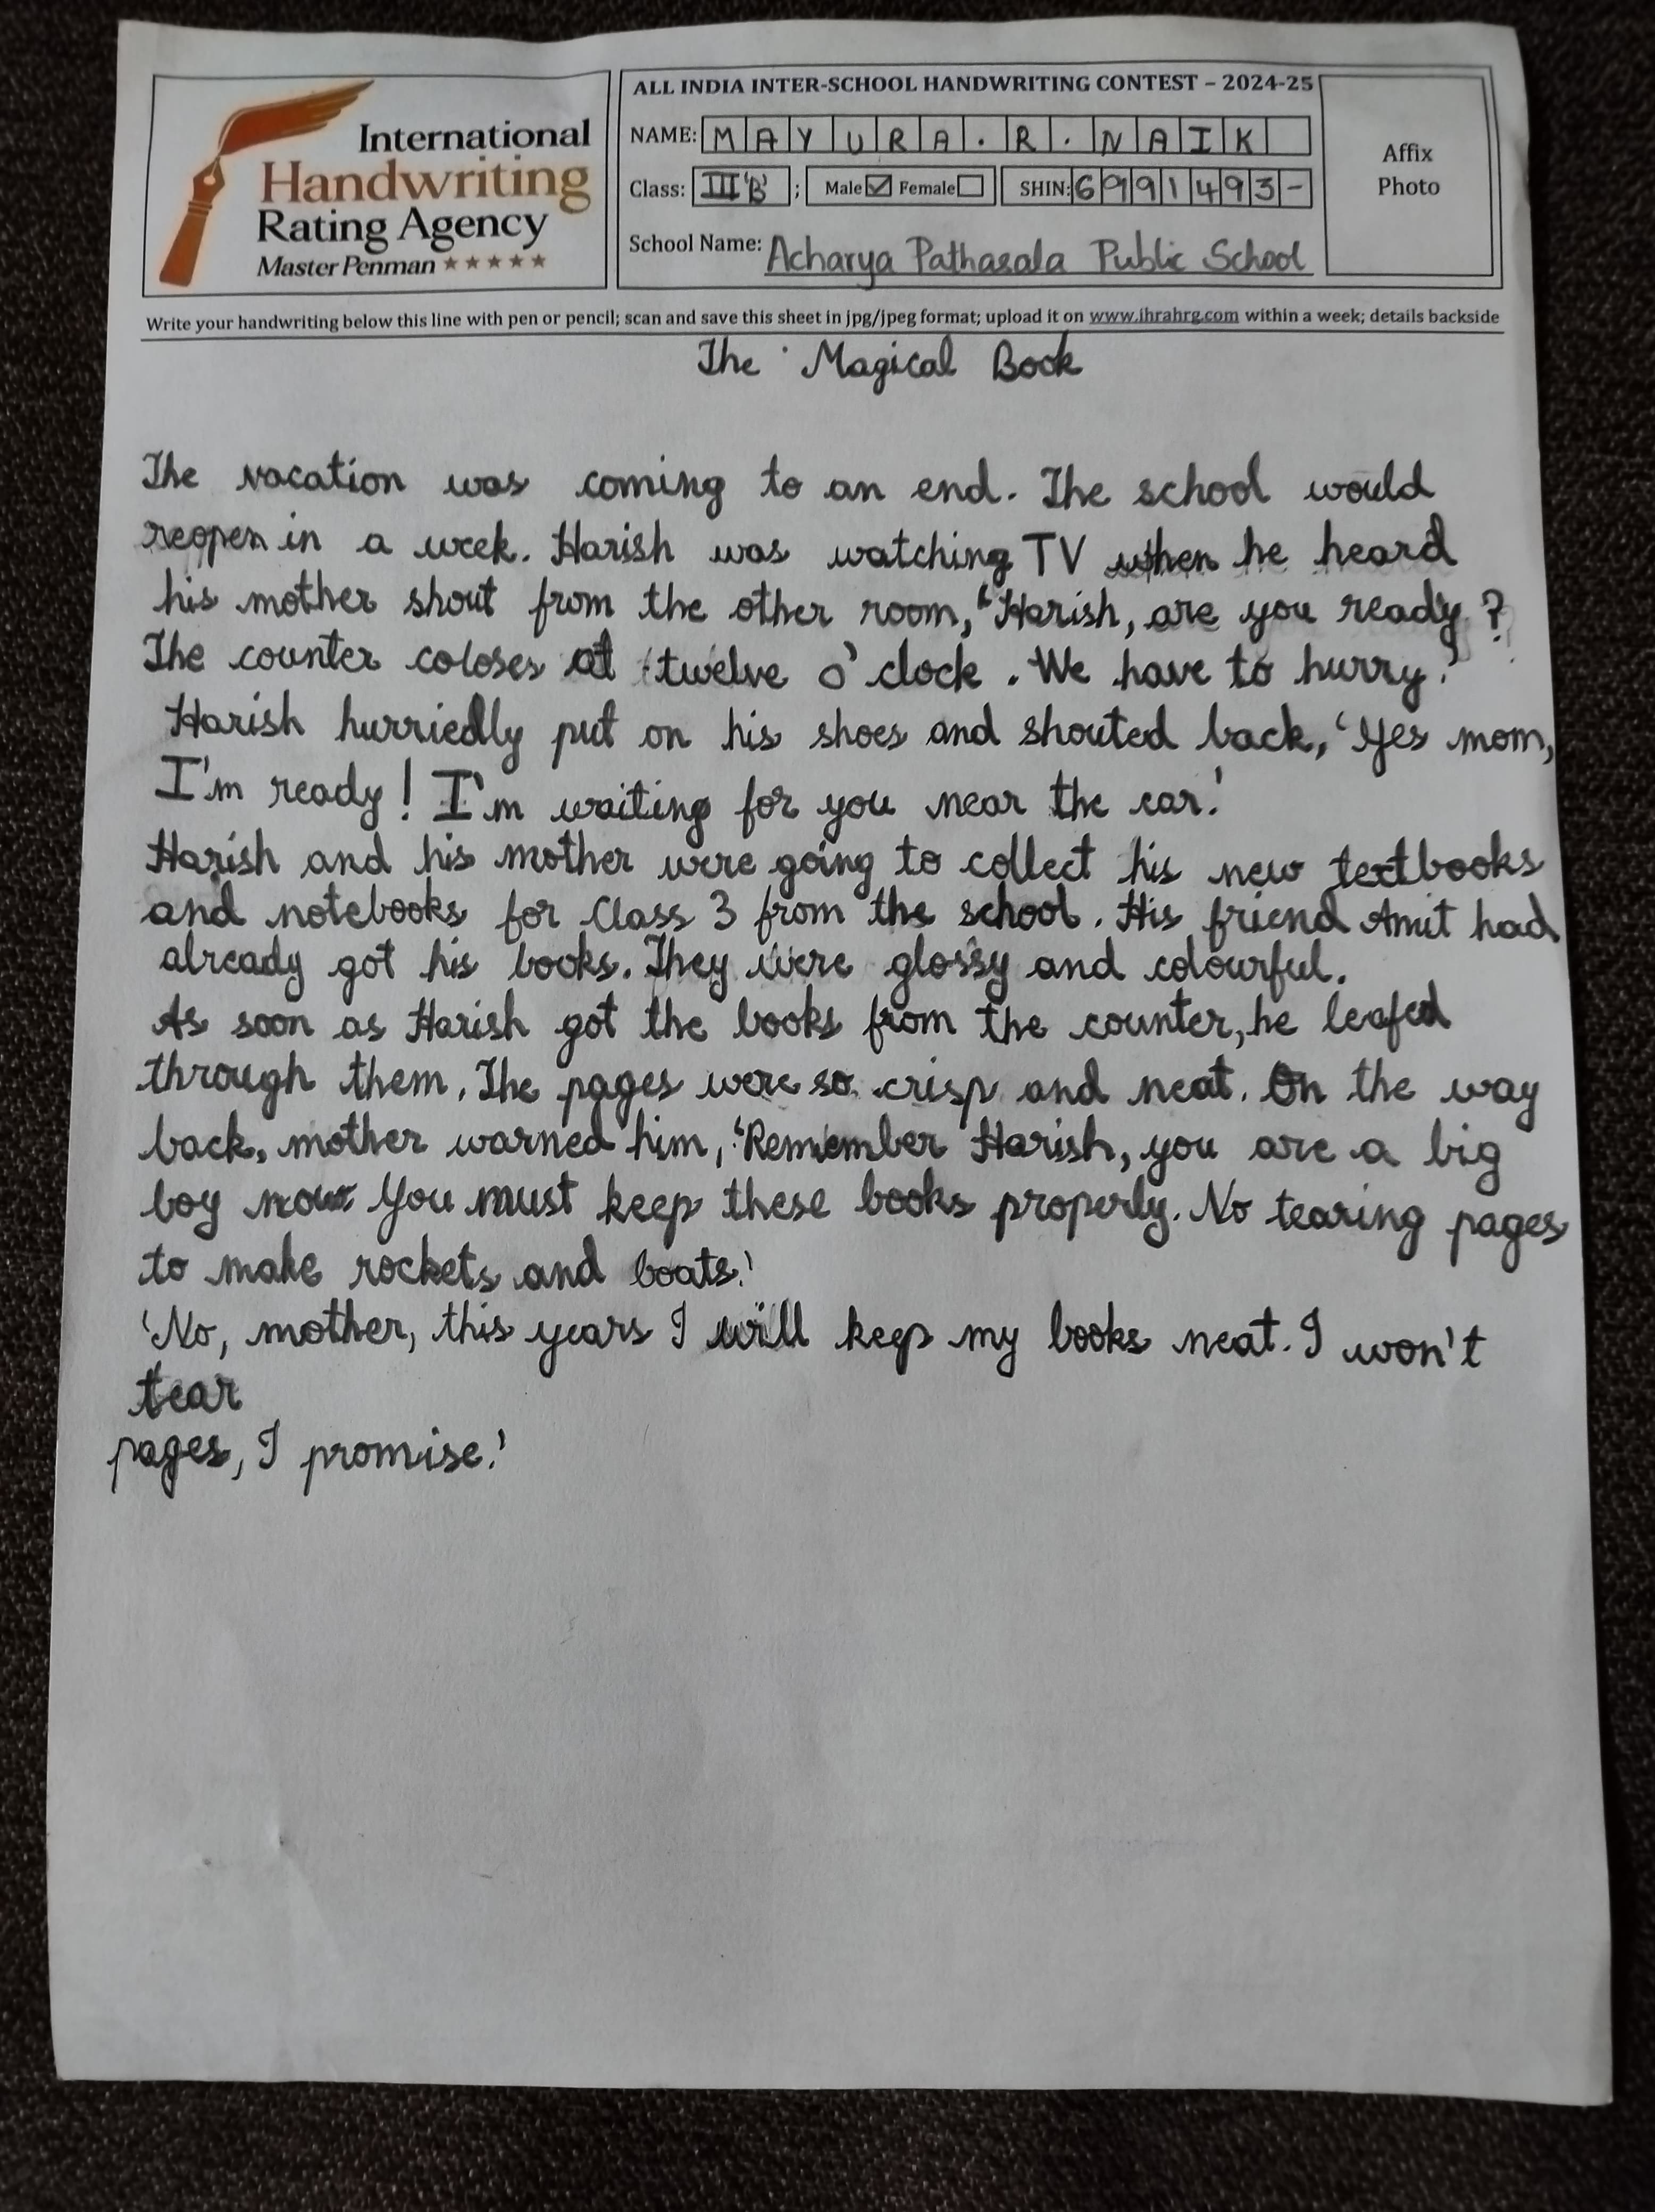 International
Handwriting
Rating Agency
Master Penman ★★★★★
ALL INDIA INTER-SCHOOL HANDWRITING CONTEST – 2024-25
NAME: MAYURA.R.NAIK
Class: III'B' ; Male ☑ Female ☐ SHIN: 6991493-
School Name: Acharya Pathasala Public School
Affix
Photo
Write your handwriting below this line with pen or pencil; scan and save this sheet in jpg/jpeg format; upload it on www.ihrahrg.com within a week; details backside
The Magical Book
The vacation was coming to an end. The school would
reopen in a week. Harish was watching TV when he heard
his mother shout from the other room, 'Harish, are you ready?
The counter coloses at twelve o'clock. We have to hurry.'
Harish hurriedly put on his shoes and shouted back, 'Yes mom,
I'm ready! I'm waiting for you near the car.'
Harish and his mother were going to collect his new textbooks
and notebooks for Class 3 from the school. His friend Amit had
already got his books. They were glossy and colourful.
As soon as Harish got the books from the counter, he leafed
through them. The pages were so crisp and neat. On the way
back, mother warned him, 'Remember Harish, you are a big
boy now You must keep these books properly. No tearing pages
to make rockets and boats.'
'No, mother, this years I will keep my books neat. I won't
tear
pages, I promise.'